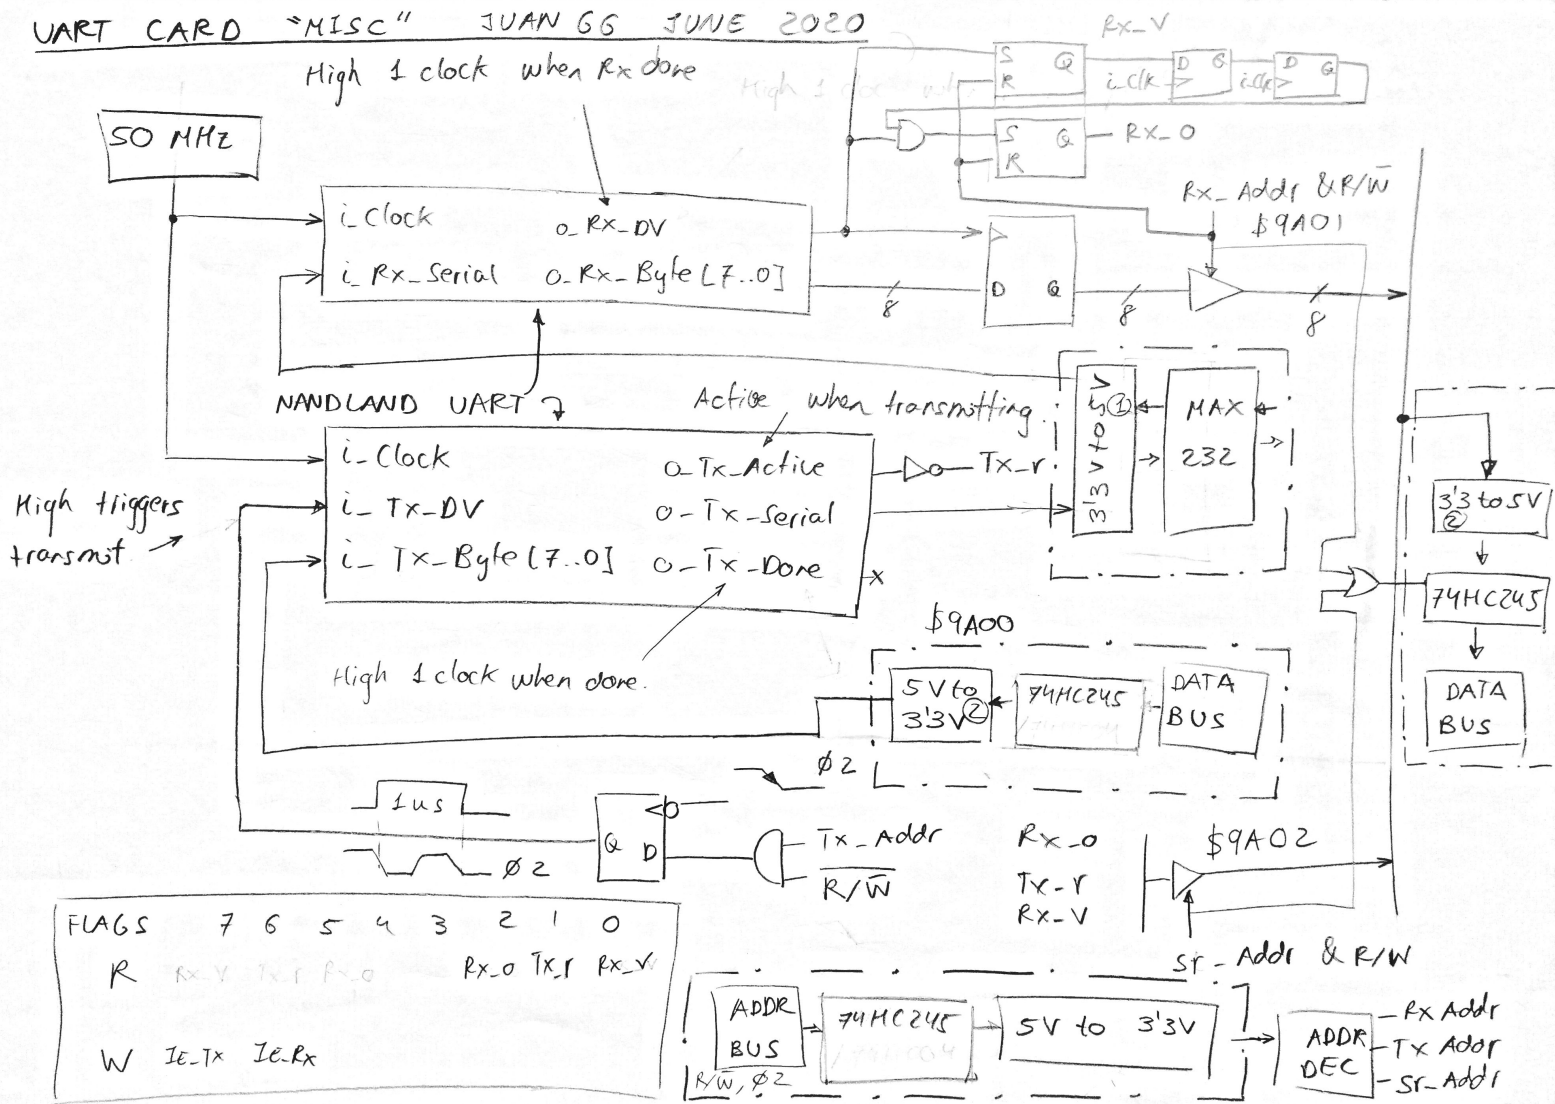 UART CARD "MISC" JUAN GG JUNE 2020
High 1 clock when Rx done
50 MHz
i_Clock
o_Rx_DV
i_Rx_Serial
o_Rx_Byte [7..0]
Rx_V
S Q
R
i_Clk
D Q
i_Clk
D Q
S Q
R
Rx_o
Rx_Addr & R/W̅
$9A01
D Q
8
8
8
NANDLAND UART
Active when transmitting
i_Clock
o_Tx_Active
Tx_r
i_Tx_DV
o_Tx_Serial
i_Tx_Byte [7..0]
o_Tx_Done
x
High triggers
transmit.
High 1 clock when done.
3'3V to 5V ①
MAX
232
3'3 to 5V
②
74HC245
DATA
BUS
$9A00
5V to
3'3V ②
74HC245
DATA
BUS
ø2
1us
ø2
Q D
Tx_Addr
R/W̅
Rx_o
Tx_r
Rx_V
$9A02
Sr_Addr & R/W
FLAGS 7 6 5 4 3 2 1 0
R Rx_V Tx_r Rx_o Rx_o Tx_r Rx_V
W IE_Tx IE_Rx
ADDR
BUS
R/W̅, ø2
74HC245
5V to 3'3V
ADDR
DEC
Rx Addr
Tx Addr
Sr_Addr